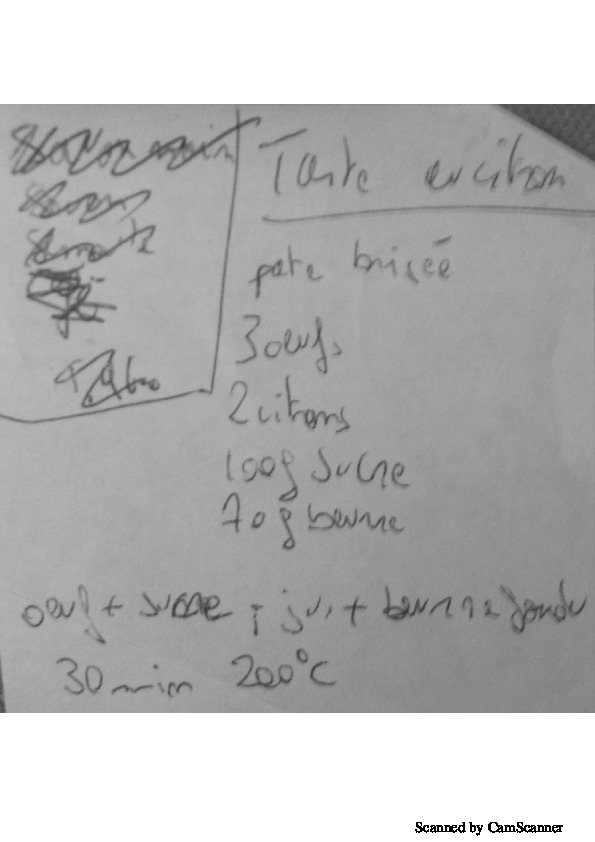 Tarte au citron
pate brisée
3 oeufs
2 citrons
100g sucre
70g beurre
oeuf + sucre ; jus + beurre fondu
30 min 200°C
Scanned by CamScanner